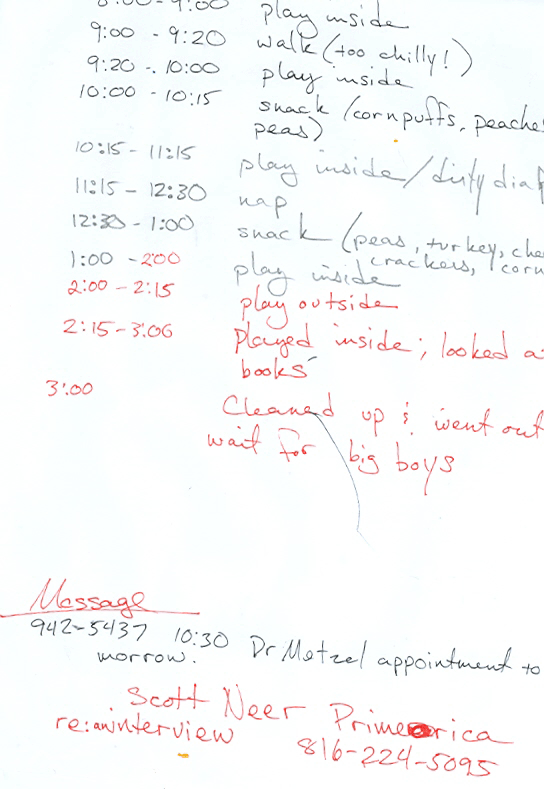 8:00 - 9:00 play inside
9:00 - 9:20 walk (too chilly!)
9:20 - 10:00 play inside
10:00 - 10:15 snack (cornpuffs, peache
peas)
10:15 - 11:15 play inside/dirty diap
11:15 - 12:30 nap
12:30 - 1:00 snack (peas, turkey, che
crackers, corn
1:00 - 2:00 play inside
2:00 - 2:15 play outside
2:15 - 3:00 Played inside; looked a
books
3:00 Cleaned up & went out
wait for big boys
Message
942-5437 10:30 Dr Metzel appointment to
morrow.
Scott Neer Primerica
re: interview 816-224-5095